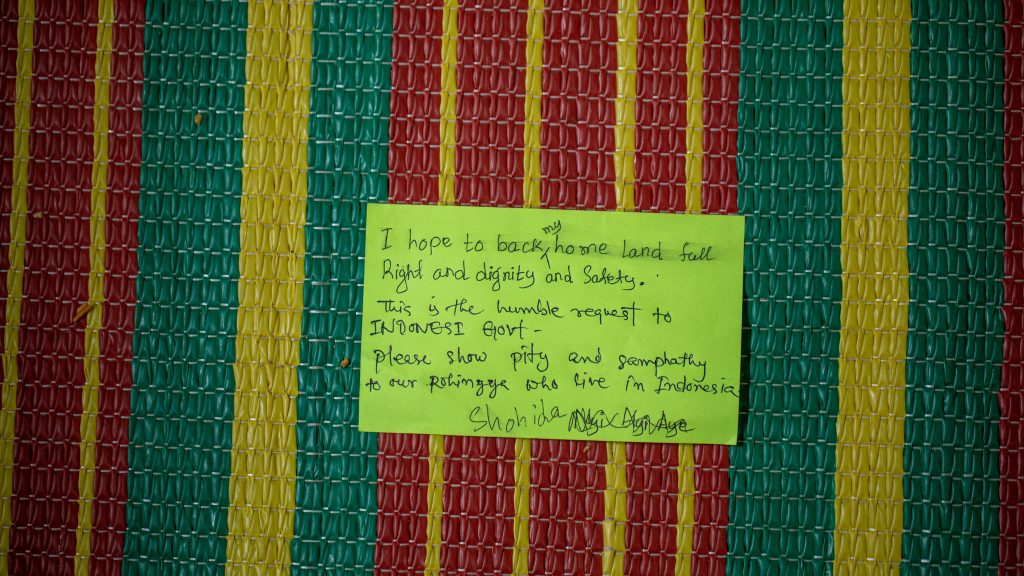 I hope to back my home land full
Right and dignity and Safety.
This is the humble request to
INDONESI Govt -
please show pity and sampathy
to our Rohingya who live in Indonesia
Shohida